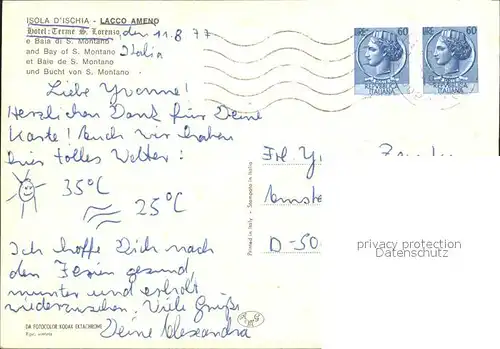 ISOLA D'ISCHIA - LACCO AMENO
Hotel: Terme S. Lorenzo, den 11.8.77
e Baia di S. Montano
and Bay of S. Montano Italia
et Baie de S. Montano
und Bucht von S. Montano
LIRE 60
REPVBBLICA ITALIANA
LIRE 60
REPVBBLICA ITALIANA
Liebe Yvonne!
Herzlichen Dank für Deine
Karte! Auch wir haben
hier tolles Wetter:
35°C
25°C
Ich hoffe Dich nach
den Ferien gesund,
munter und erholt
wiederzusehen. Viele Grüße
Deine Alexandra
Frl. Y
Amste
D-50
Printed in Italy - Stampato in Italia
privacy protection
Datenschutz
DA FOTOCOLOR KODAK EKTACHROME